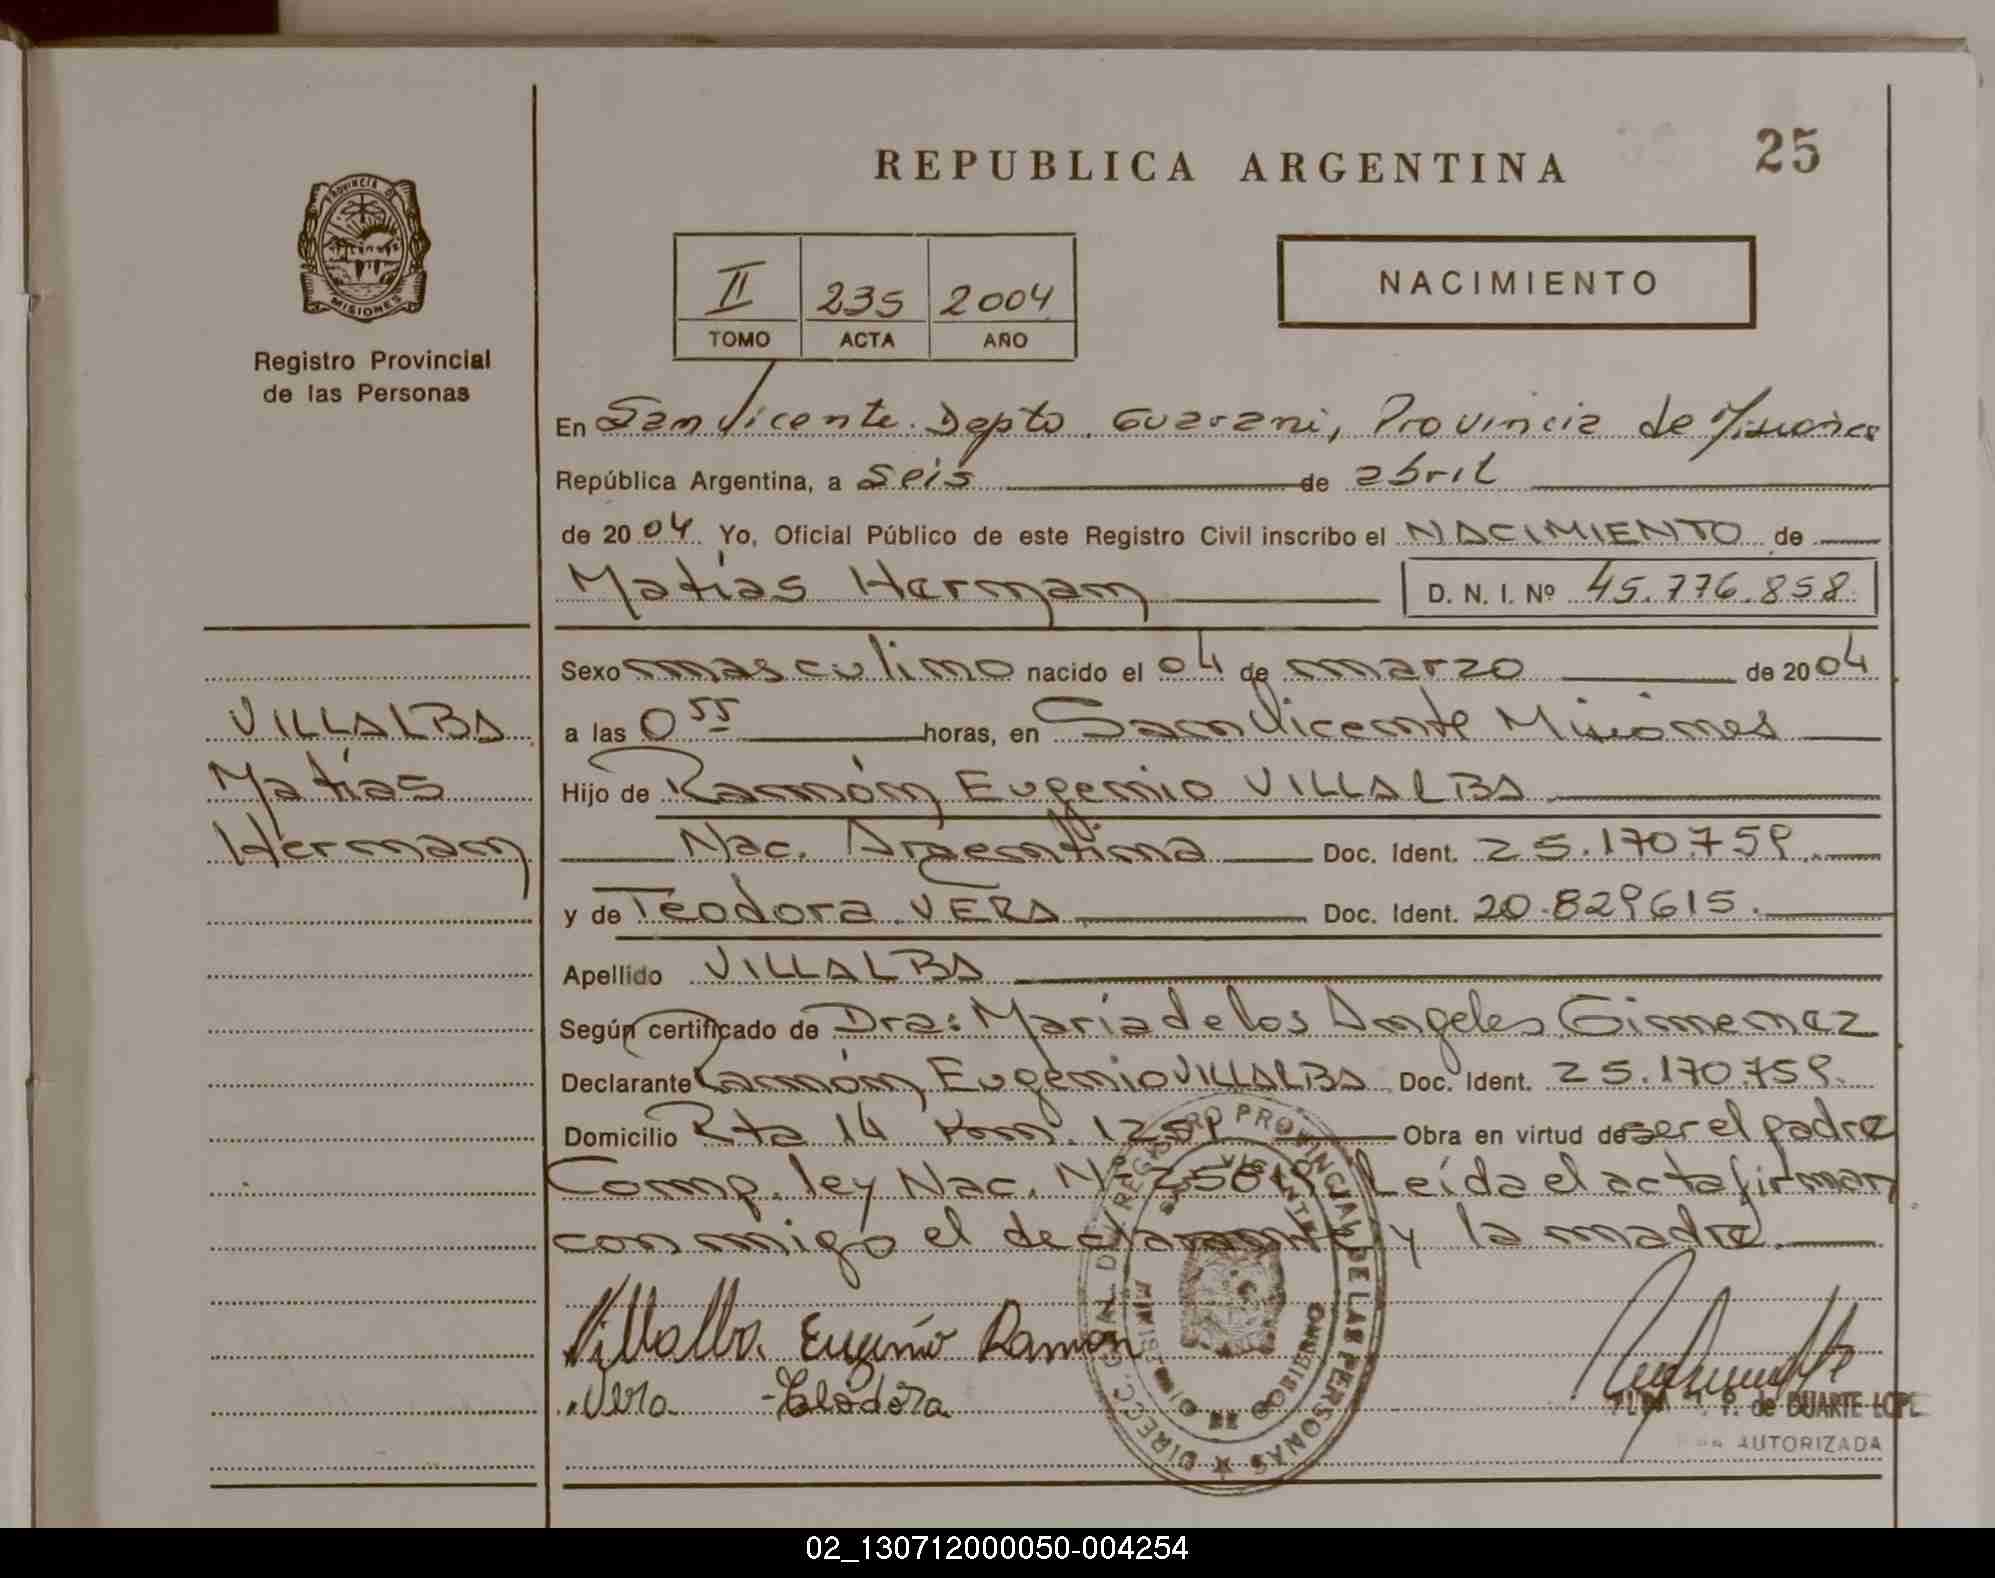 REPUBLICA ARGENTINA
25
PROVINCIA DE
MISIONES
Registro Provincial
de las Personas
II 235 2004
TOMO ACTA AÑO
NACIMIENTO
En San Vicente. Depto. Guarani, Provincia de Misiones
República Argentina, a seis de abril
de 2004 Yo, Oficial Público de este Registro Civil inscribo el NACIMIENTO de
Matías Hernan D. N. I. Nº 45.776.858
Sexo masculino nacido el 04 de marzo de 2004
a las 0 55 horas, en San Vicente Misiones
Hijo de Ramón Eugenio VILLALBA
Nac. Argentina Doc. Ident. 25.170.759
y de Teodora VERA Doc. Ident. 20.829615.
Apellido VILLALBA
Según certificado de Dra: María de los Angeles Gimenez
Declarante Ramón Eugenio VILLALBA Doc. Ident. 25.170.759.
Domicilio Rta 14 Km. 1259 Obra en virtud de ser el padre
Comp. ley Nac. Nº Leída el acta firman
conmigo el declarante y la madre.
VILLALBA
Matías
Hernan
Villalba. Eugenio Ramon
Vera
DIRECC. GRAL. DEL REGISTRO PROVINCIAL DE LAS PERSONAS
SAN VICENTE
MINISTERIO DE GOBIERNO
de DUARTE LOPE
AUTORIZADA
02_130712000050-004254